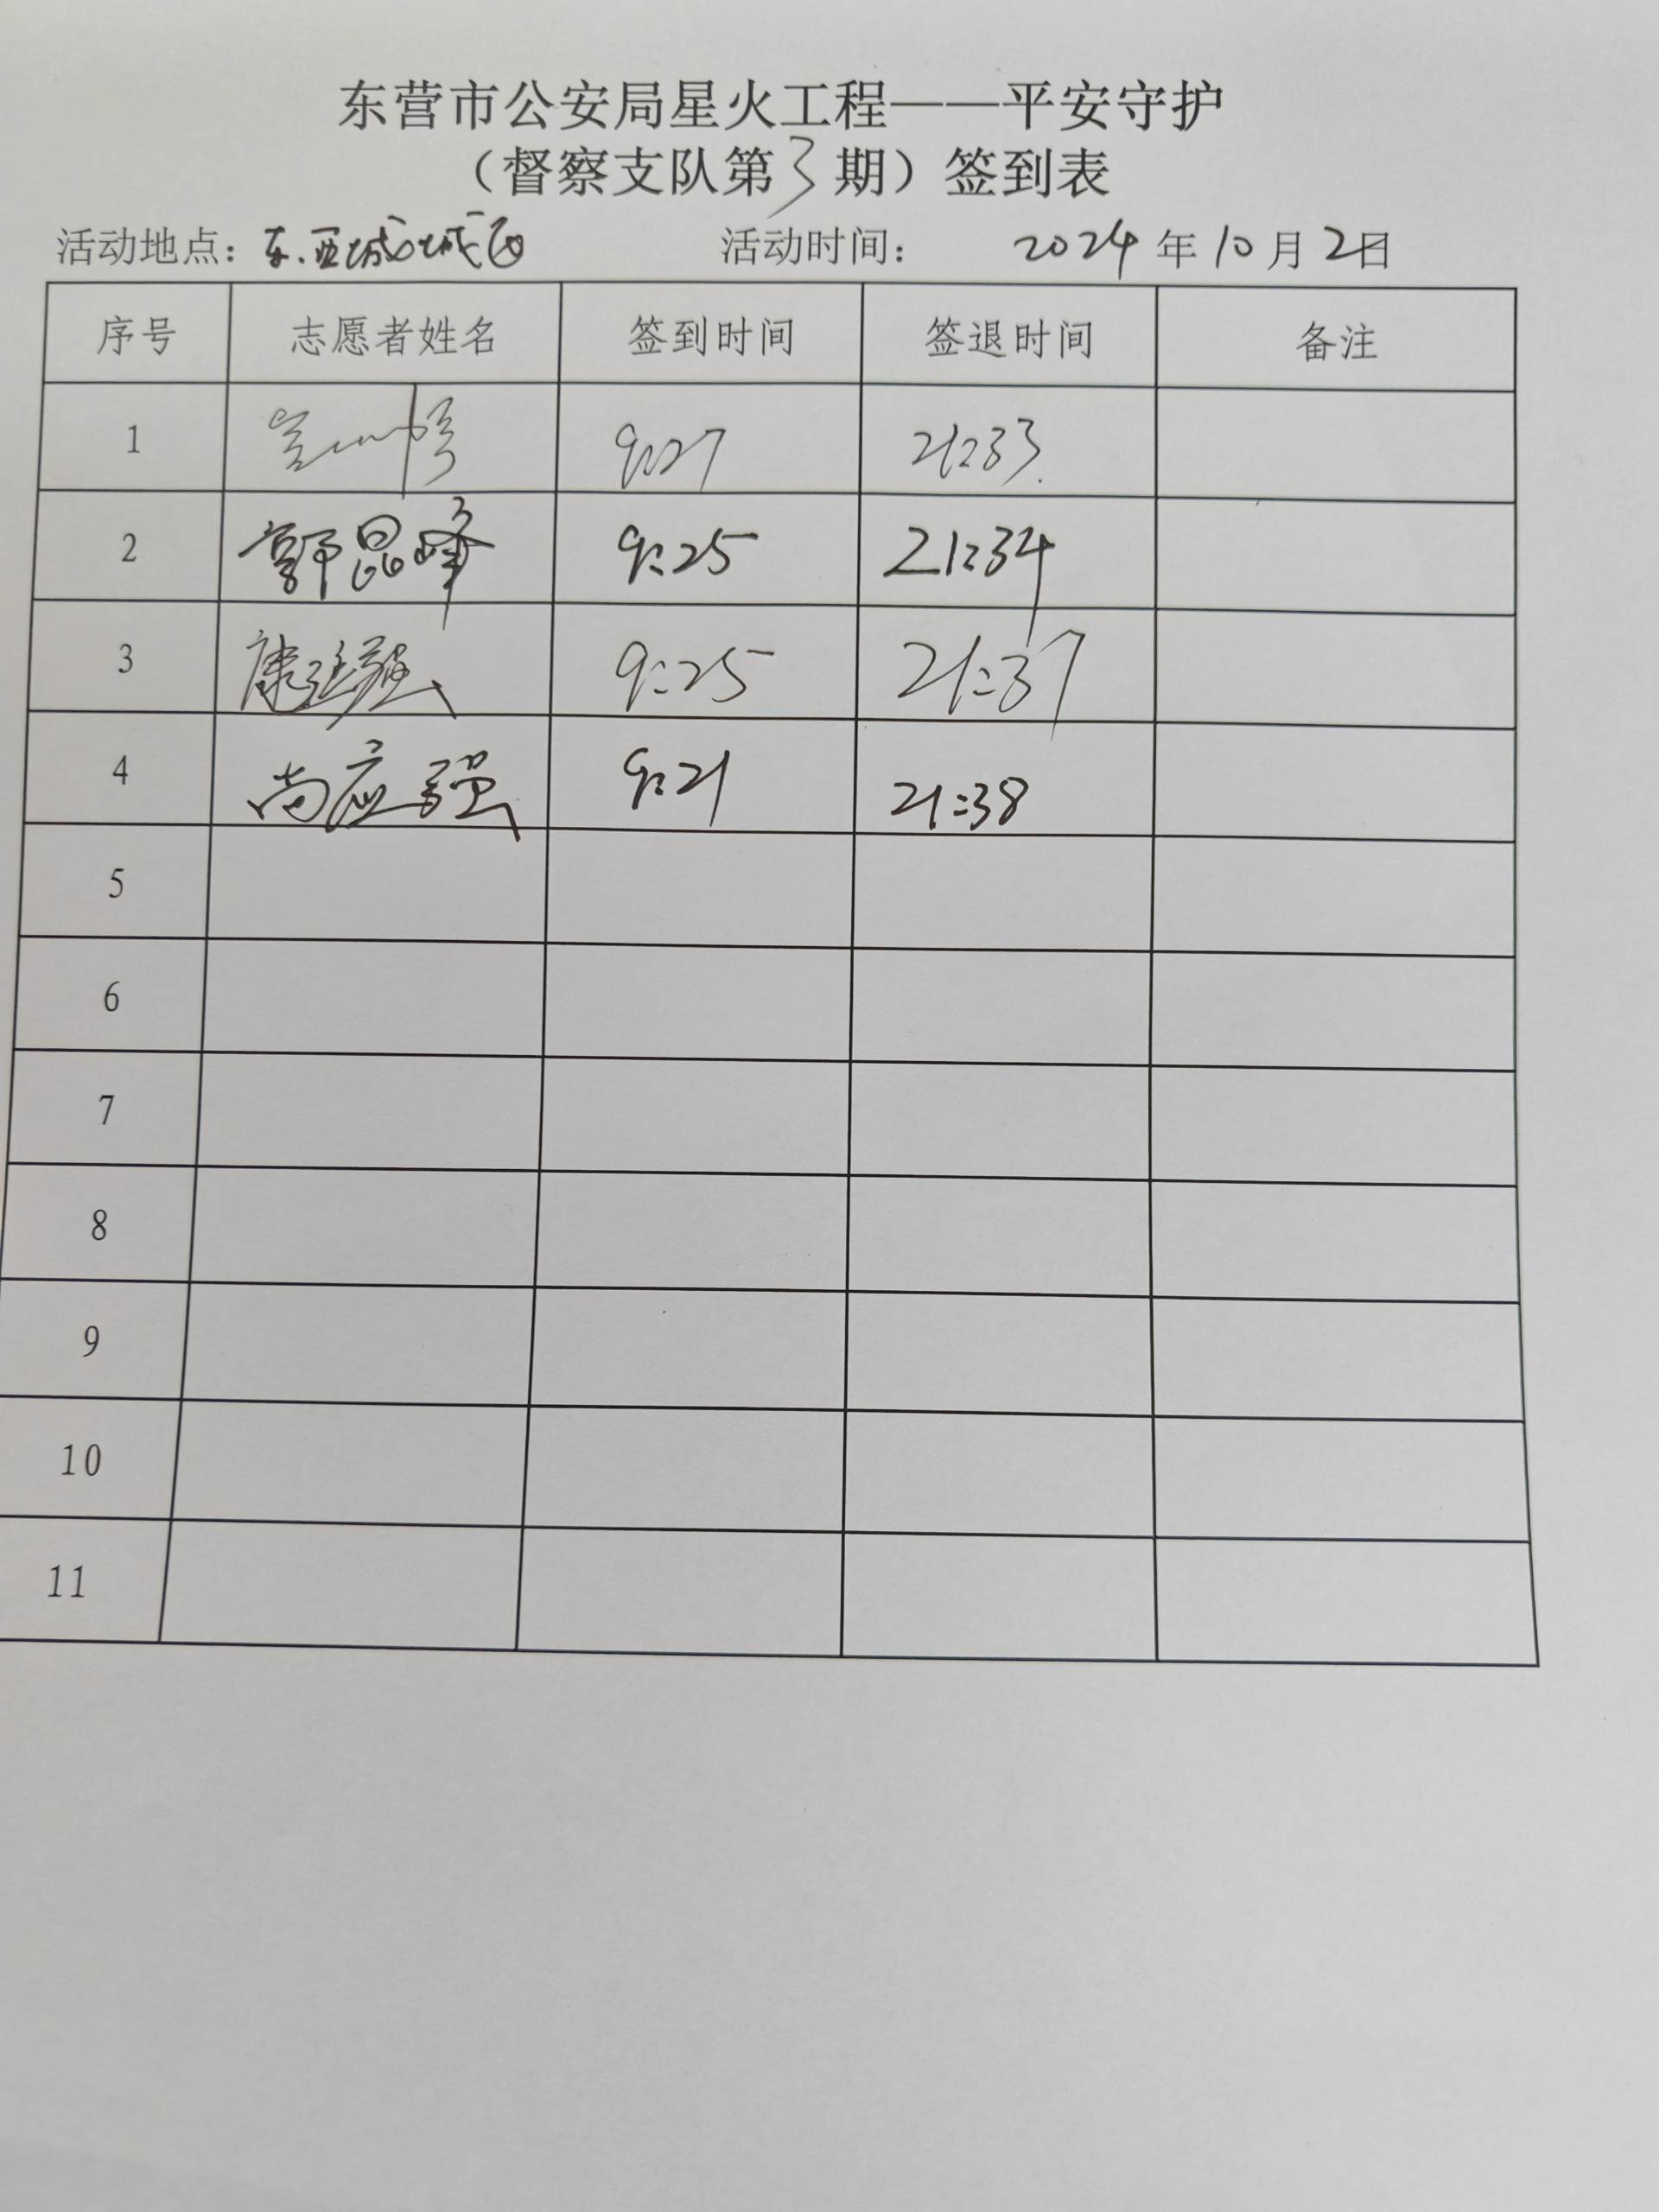 东营市公安局星火工程——平安守护
（督察支队第3期）签到表
活动地点：东.西城城区 活动时间： 2024年10月2日
序号 志愿者姓名 签到时间 签退时间 备注
1 9:27 21:33
2 郭昆峰 9:25 21:34
3 康延强 9:25 21:37
4 尚应强 9:21 21:38
5
6
7
8
9
10
11